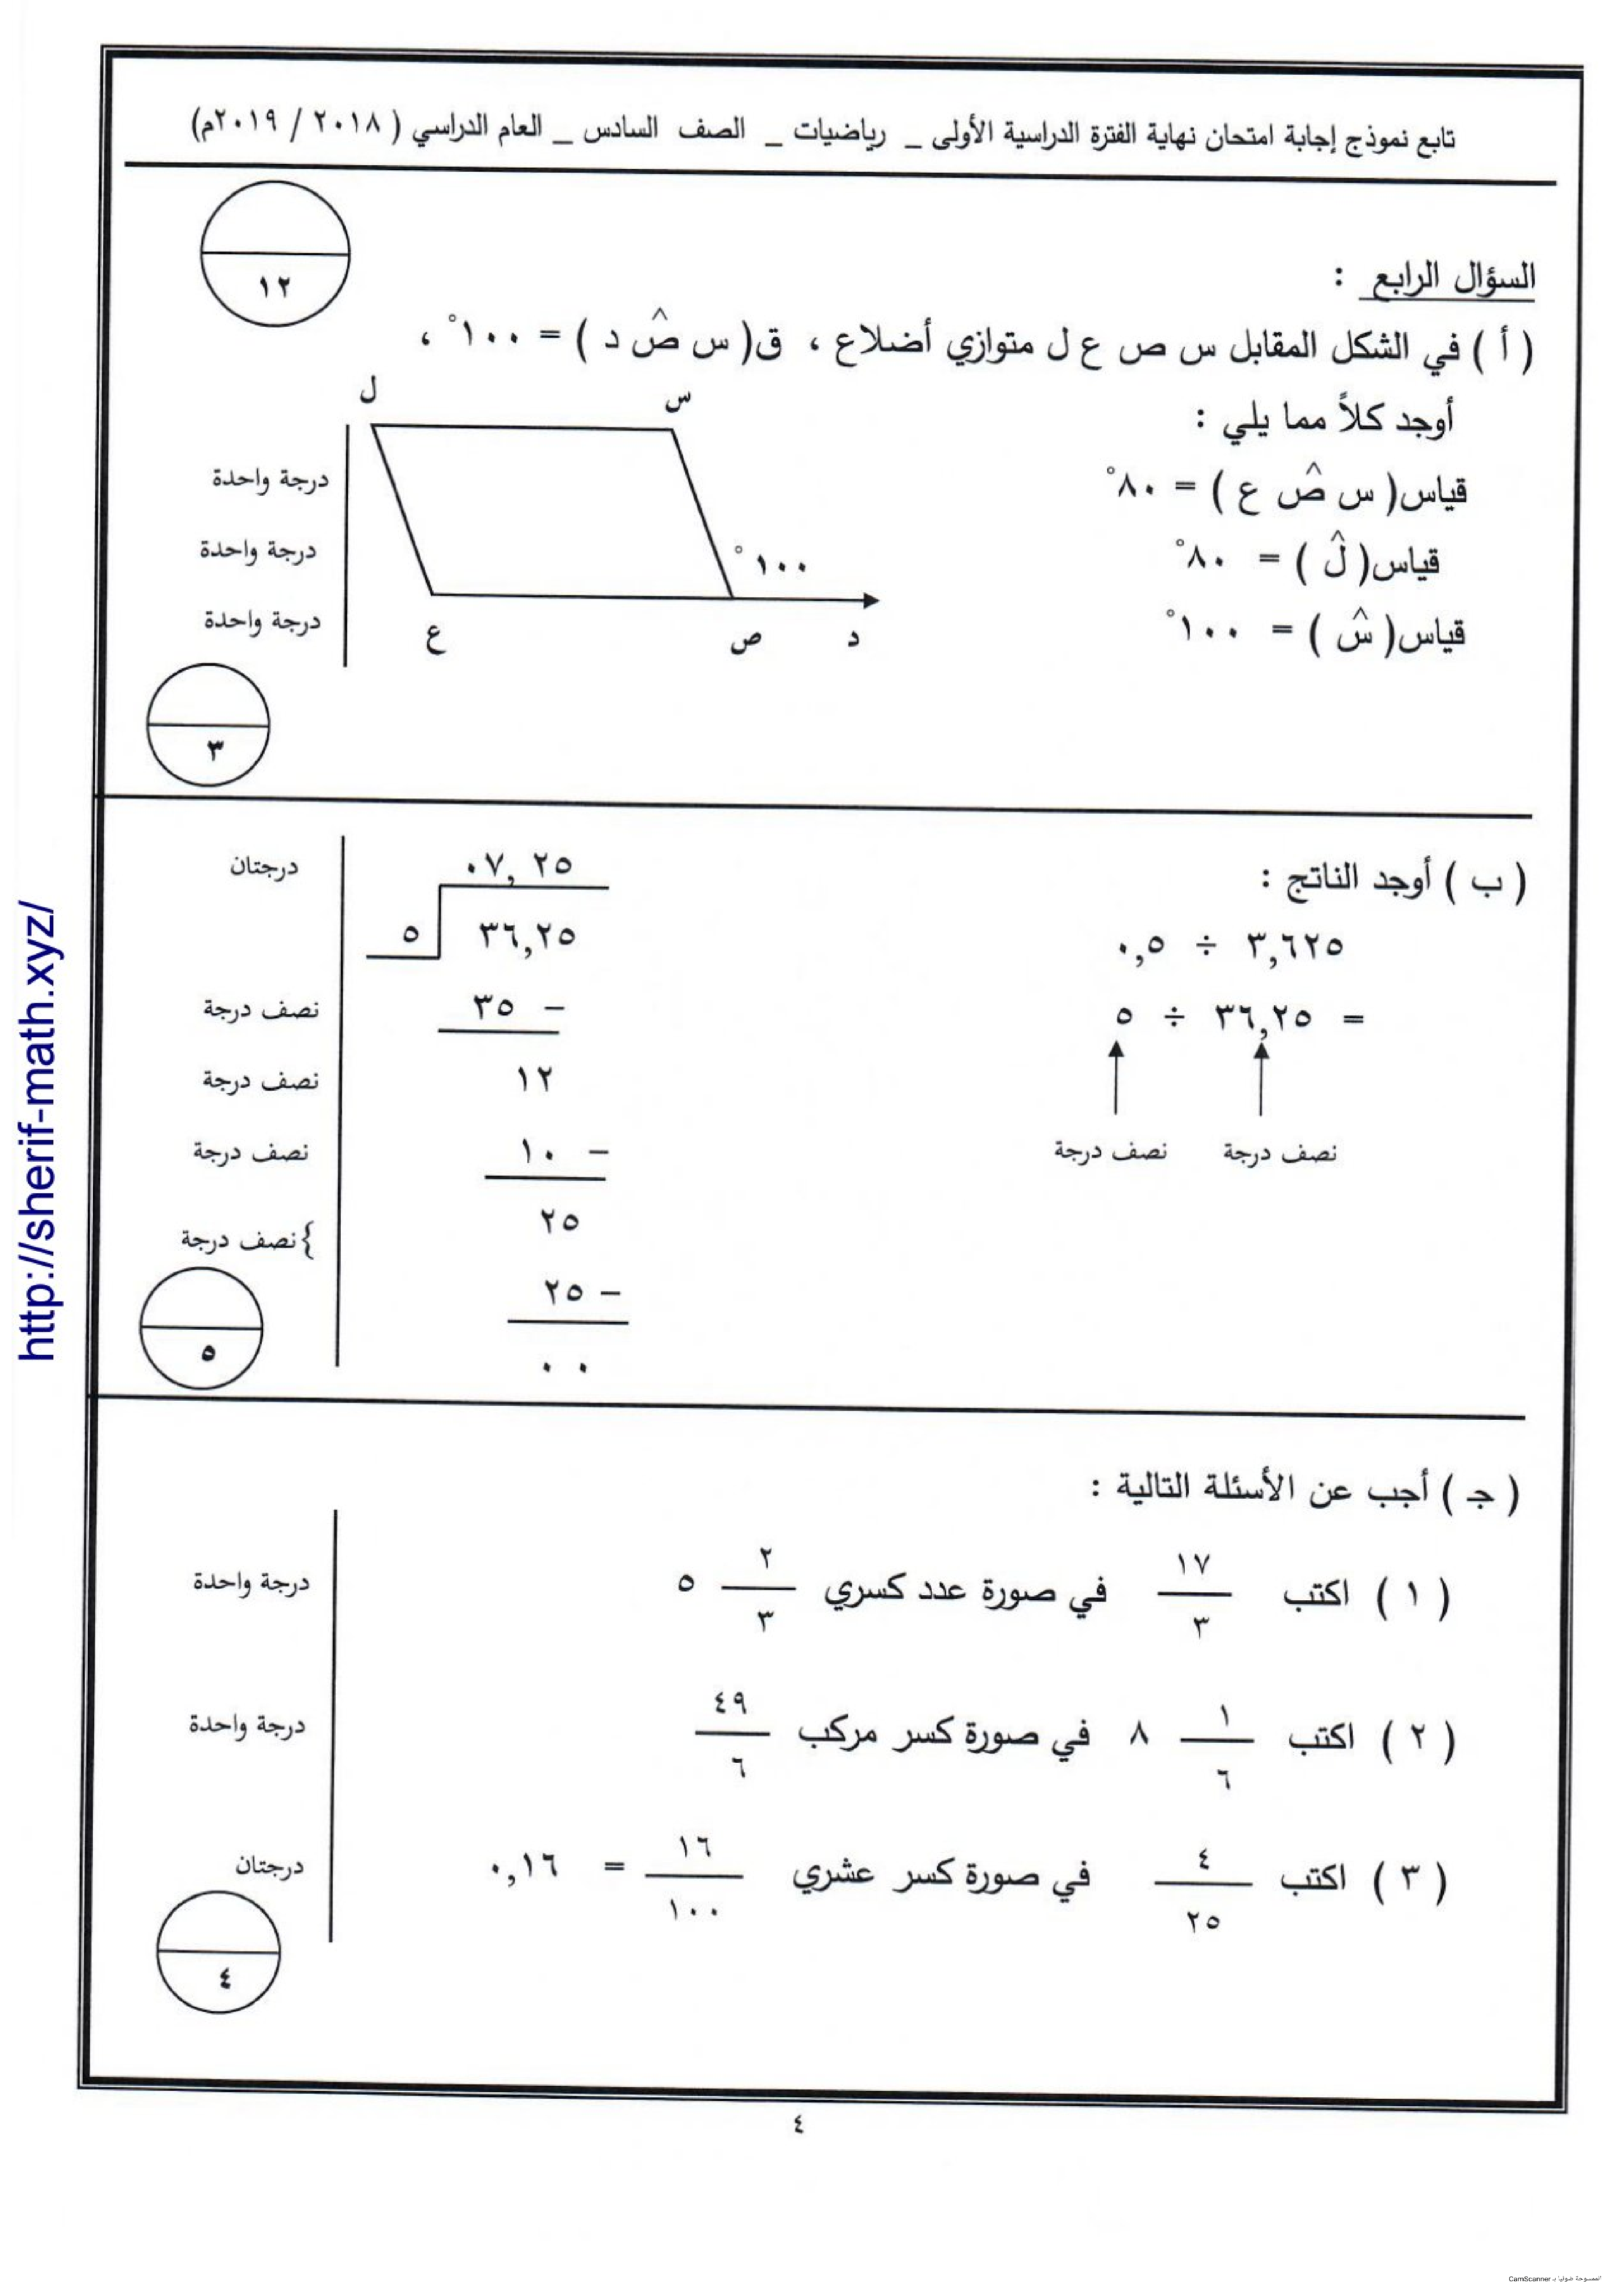 تابع نموذج إجابة امتحان نهاية الفترة الدراسية الأولى _ رياضيات _ الصف السادس _ العام الدراسي ( ٢٠١٨ / ٢٠١٩م)
١٢
السؤال الرابع :
( أ ) في الشكل المقابل س ص ع ل متوازي أضلاع ، ق( س ص̂ د ) = ١٠٠° ،
أوجد كلاً مما يلي :
ل س
قياس( س ص̂ ع ) = ٨٠° درجة واحدة
قياس( ل̂ ) = ٨٠° درجة واحدة
١٠٠°
قياس( س̂ ) = ١٠٠° درجة واحدة
ع ص د
٣
( ب ) أوجد الناتج :
٣,٦٢٥ ÷ ٠,٥
= ٣٦,٢٥ ÷ ٥
نصف درجة نصف درجة
٠٧,٢٥ درجتان
٥ ٣٦,٢٥
٣٥ − نصف درجة
١٢ نصف درجة
١٠ − نصف درجة
٢٥
} نصف درجة
٢٥ −
٠٠
٥
( جـ ) أجب عن الأسئلة التالية :
( ١ ) اكتب ١٧/٣ في صورة عدد كسري ٥ ٢/٣ درجة واحدة
( ٢ ) اكتب ٨ ١/٦ في صورة كسر مركب ٤٩/٦ درجة واحدة
( ٣ ) اكتب ٤/٢٥ في صورة كسر عشري ١٦/١٠٠ = ٠,١٦ درجتان
٤
٤
http://sherif-math.xyz/
الممسوحة ضوئيا بـ CamScanner